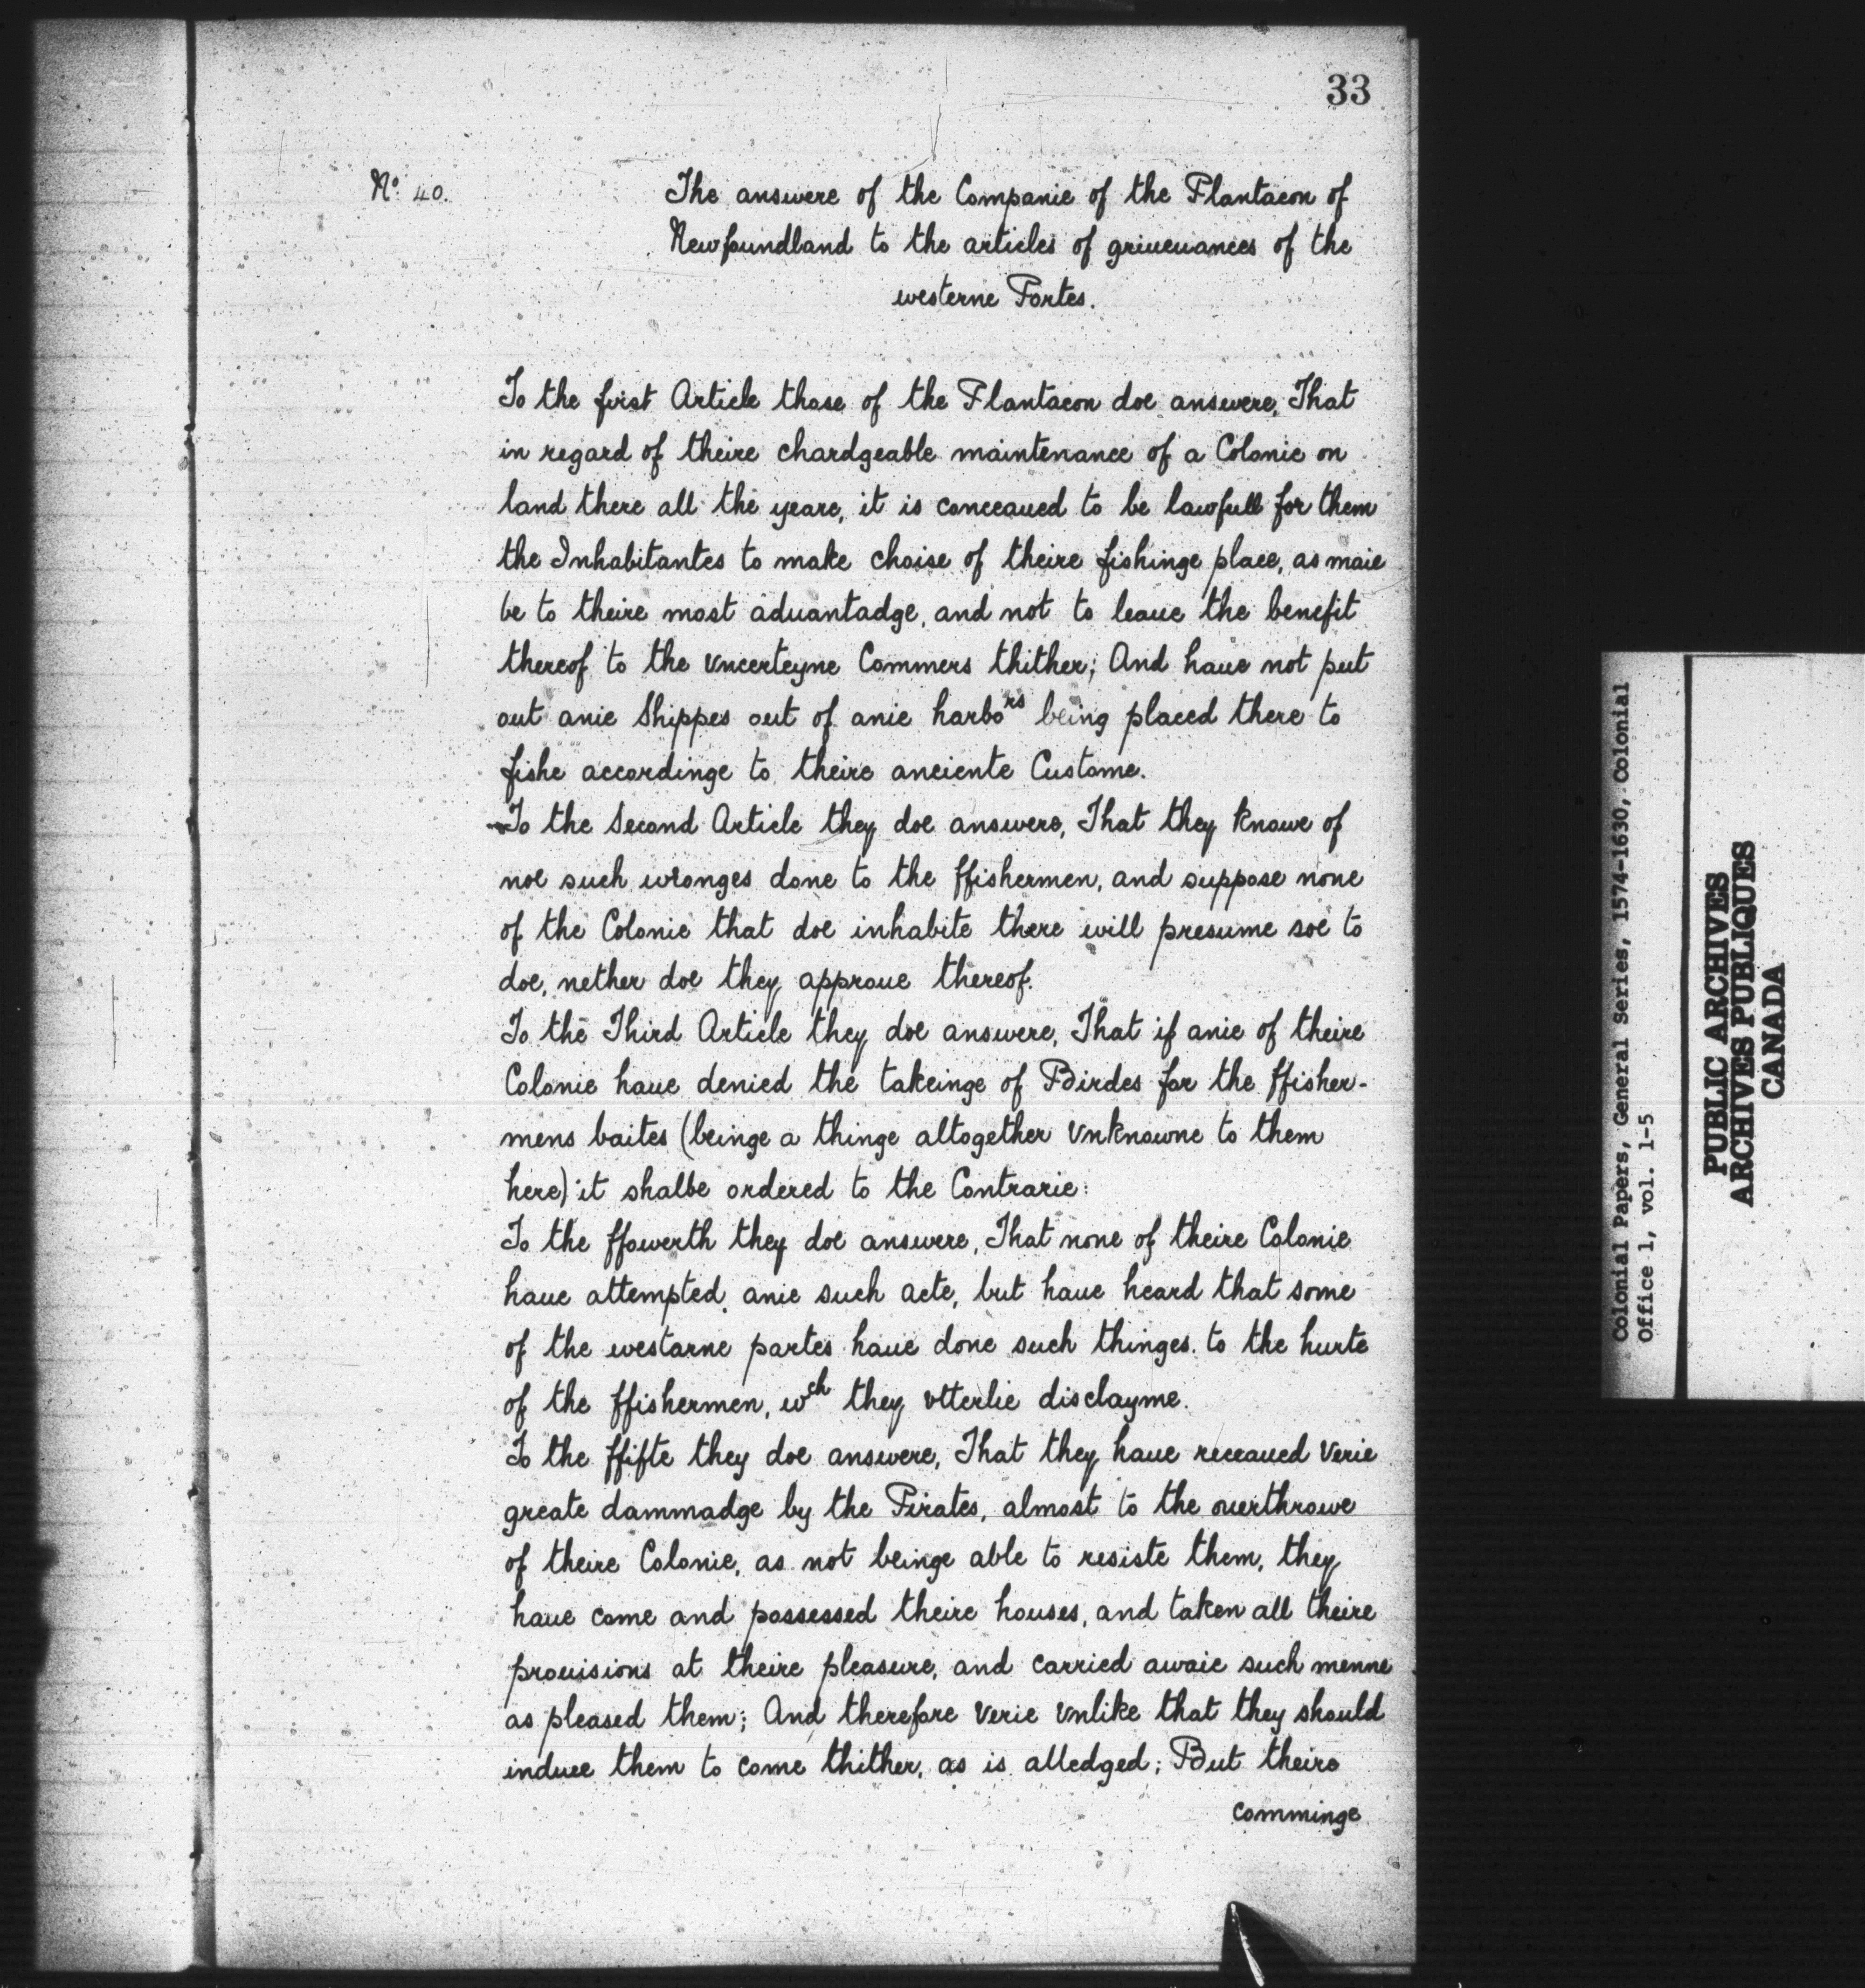 33
No. 40.
The answere of the Companie of the Plantacon of
Newfoundland to the articles of grieuances of the
westerne Portes.
To the first Article those of the Plantacon doe answere, That
in regard of theire chardgeable maintenance of a Colonie on
land there all the yeare, it is conceaued to be lawfull for them
the Inhabitantes to make choise of theire fishinge place, as maie
be to theire most aduantadge, and not to leaue the benefit
thereof to the vncerteyne Commers thither; And haue not put
out anie Shippes out of anie harbors being placed there to
fishe accordinge to theire anciente Custome.
To the Second Article they doe answere, That they knowe of
noe such wronges done to the ffishermen, and suppose none
of the Colonie that doe inhabite there will presume soe to
doe, nether doe they approue thereof.
To the Third Article they doe answere, That if anie of theire
Colonie haue denied the takeinge of Birdes for the ffisher-
mens baites (beinge a thinge altogether vnknowne to them
here) it shalbe ordered to the Contrarie:
To the ffowerth they doe answere, That none of theire Colonie
haue attempted anie such acte, but haue heard that some
of the westarne partes haue done such thinges to the hurte
of the ffishermen, wch they vtterlie disclayme.
To the ffifte they doe answere, That they haue receaued verie
greate dammadge by the Pirates, almost to the ouerthrowe
of theire Colonie, as not beinge able to resiste them, they
haue come and possessed theire houses, and taken all theire
prouisions at theire pleasure, and carried awaie such menne
as pleased them; And therefore verie vnlike that they should
induce them to come thither, as is alledged; But theire
comminge
Colonial Papers, General Series, 1574-1630, Colonial
Office 1, vol. 1-5
PUBLIC ARCHIVES
ARCHIVES PUBLIQUES
CANADA